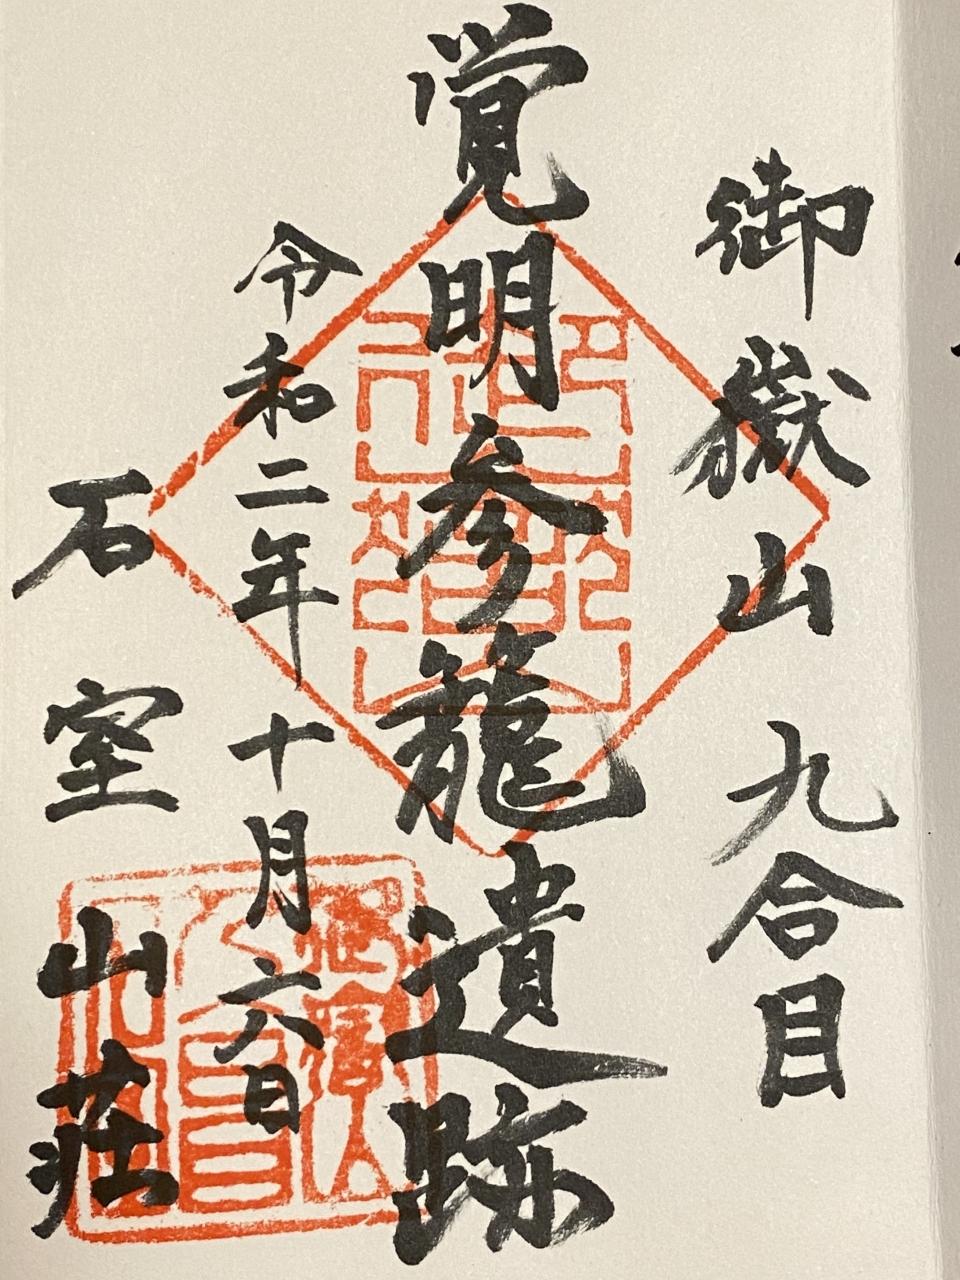 御嶽山 九合目
覚明参籠遺跡
令和二年十月六日
石室山荘